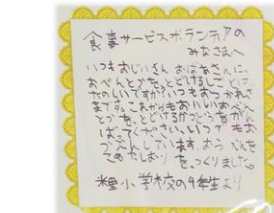 食事サービスボランティアの
みなさまへ
いつもおじいさん おばあさんに
おべんとうを とどけること
たのしいですか？いつもおつかれさ
まです。これからもおいしいおべん
とうを とどけるかつどうをがん
ばってください。いつも お
うえんしています。おうえんを
こめた しおりを つくりました。
小学校の4年生より